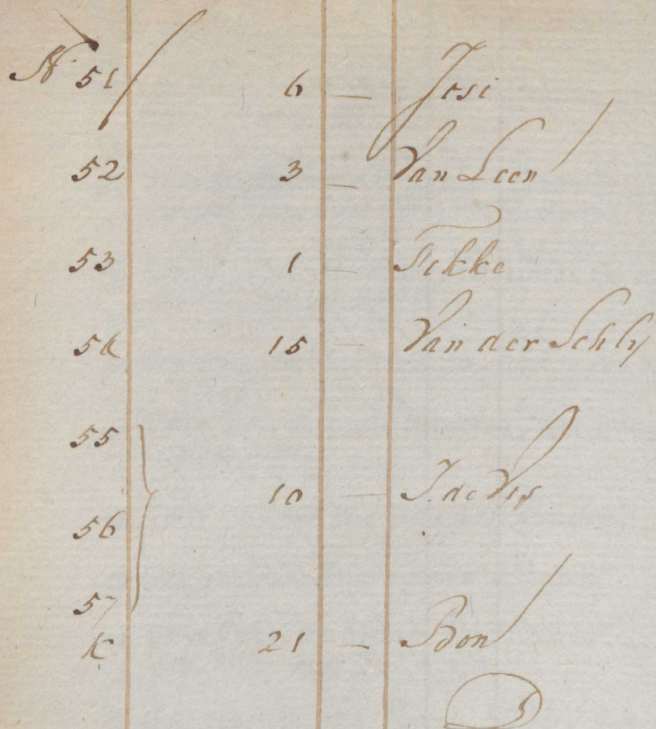 N. 51 6 — Josi
52 3 — Van Leen
53 1 — Fekke
54 15 — Van der Schley
55
56 10 — J. de Vos
57
K 21 — Bon